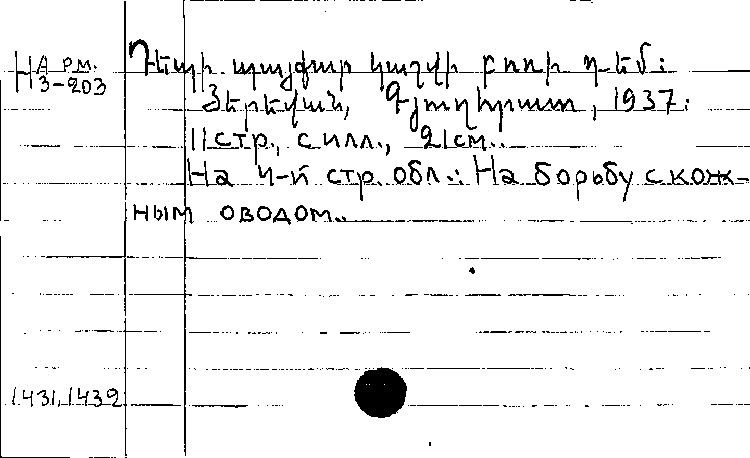 НАРМ. Դեպի պայքար կաշվի բոռի դեմ։
3-203 Յերեվան, Գյուղհրատ, 1937։
11 стр., с илл., 21 см.
На 4-й стр. обл.: На борьбу с кож-
ным оводом.
1431, 1432